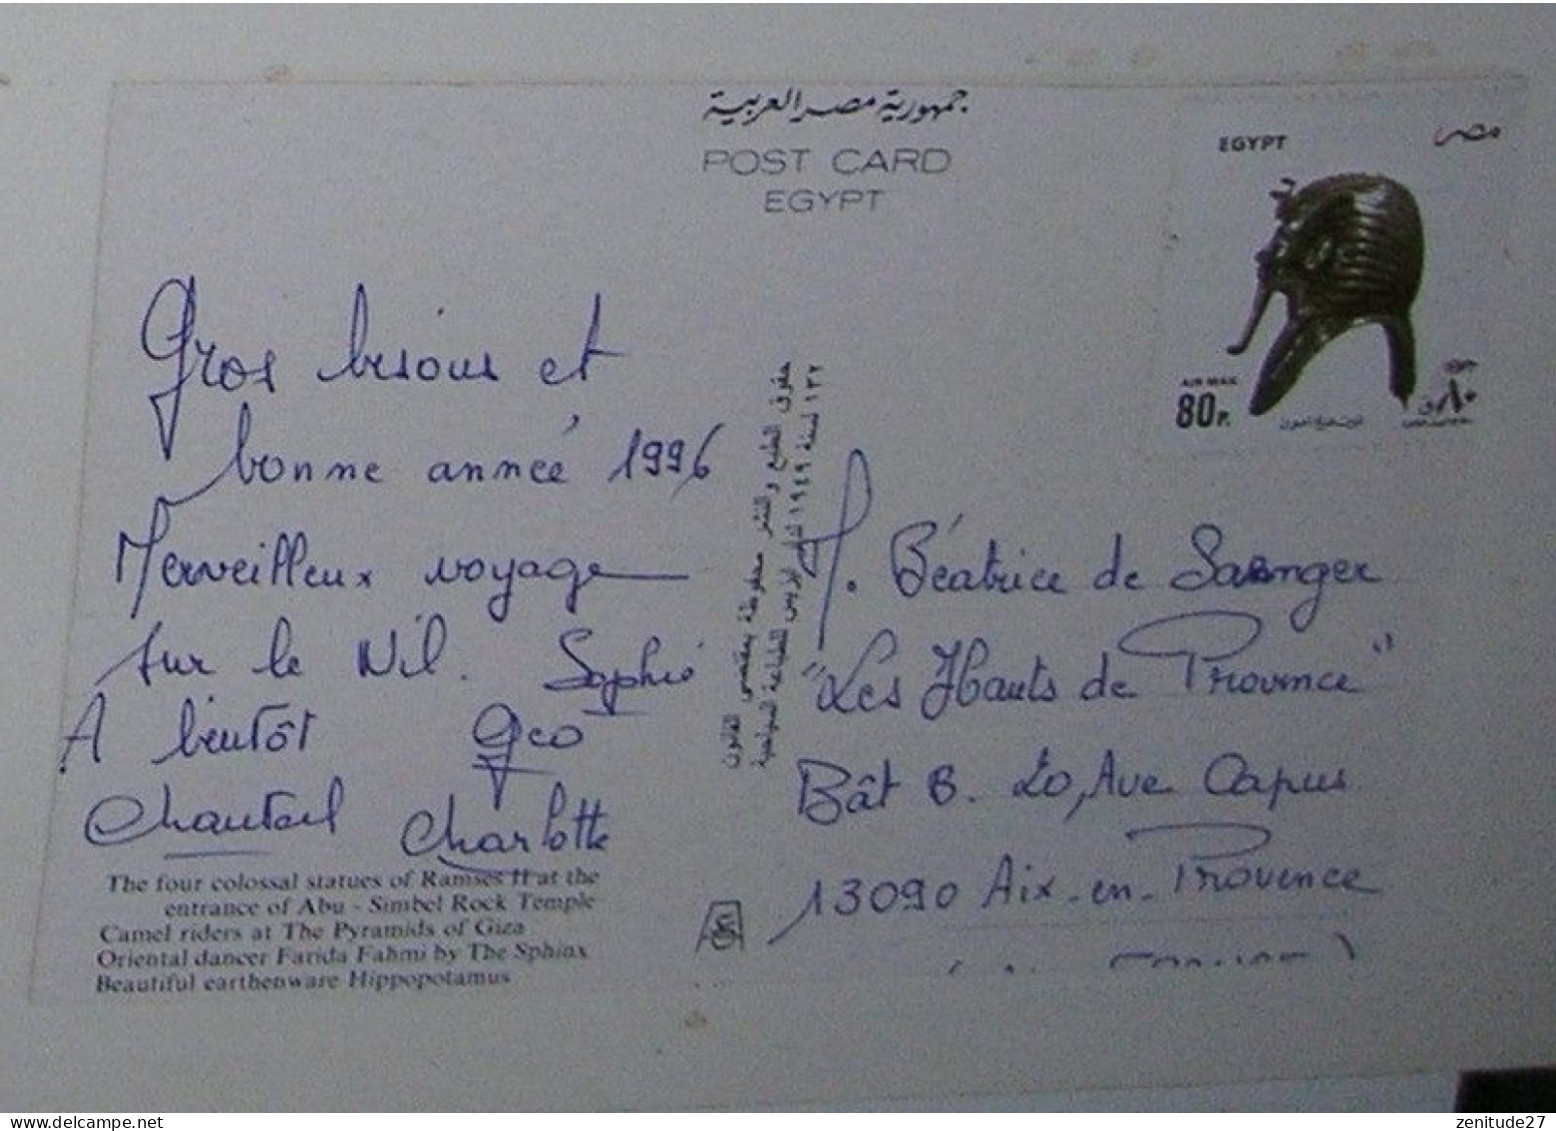 جمهورية مصر العربية
POST CARD
EGYPT
EGYPT
مصر
AIR MAIL
80 P.
Gros bisous et
bonne année 1996
Merveilleux voyage
sur le Nil. Sophie
A bientôt Geo
Chantal Charlotte
The four colossal statues of Ramses II at the
entrance of Abu - Simbel Rock Temple
Camel riders at The Pyramids of Giza
Oriental dancer Farida Fahmi by The Sphinx
Beautiful earthenware Hippopotamus
حقوق الطبع والنشر محفوظة بمقتضى القانون
١٣٢ لسنة ١٩٤٩ للطباعة السياحية
M. Béatrice de
"Les Hauts de Provence"
Bât B. 20, Ave Capus
13090 Aix-en-Provence
delcampe.net
zenitude27